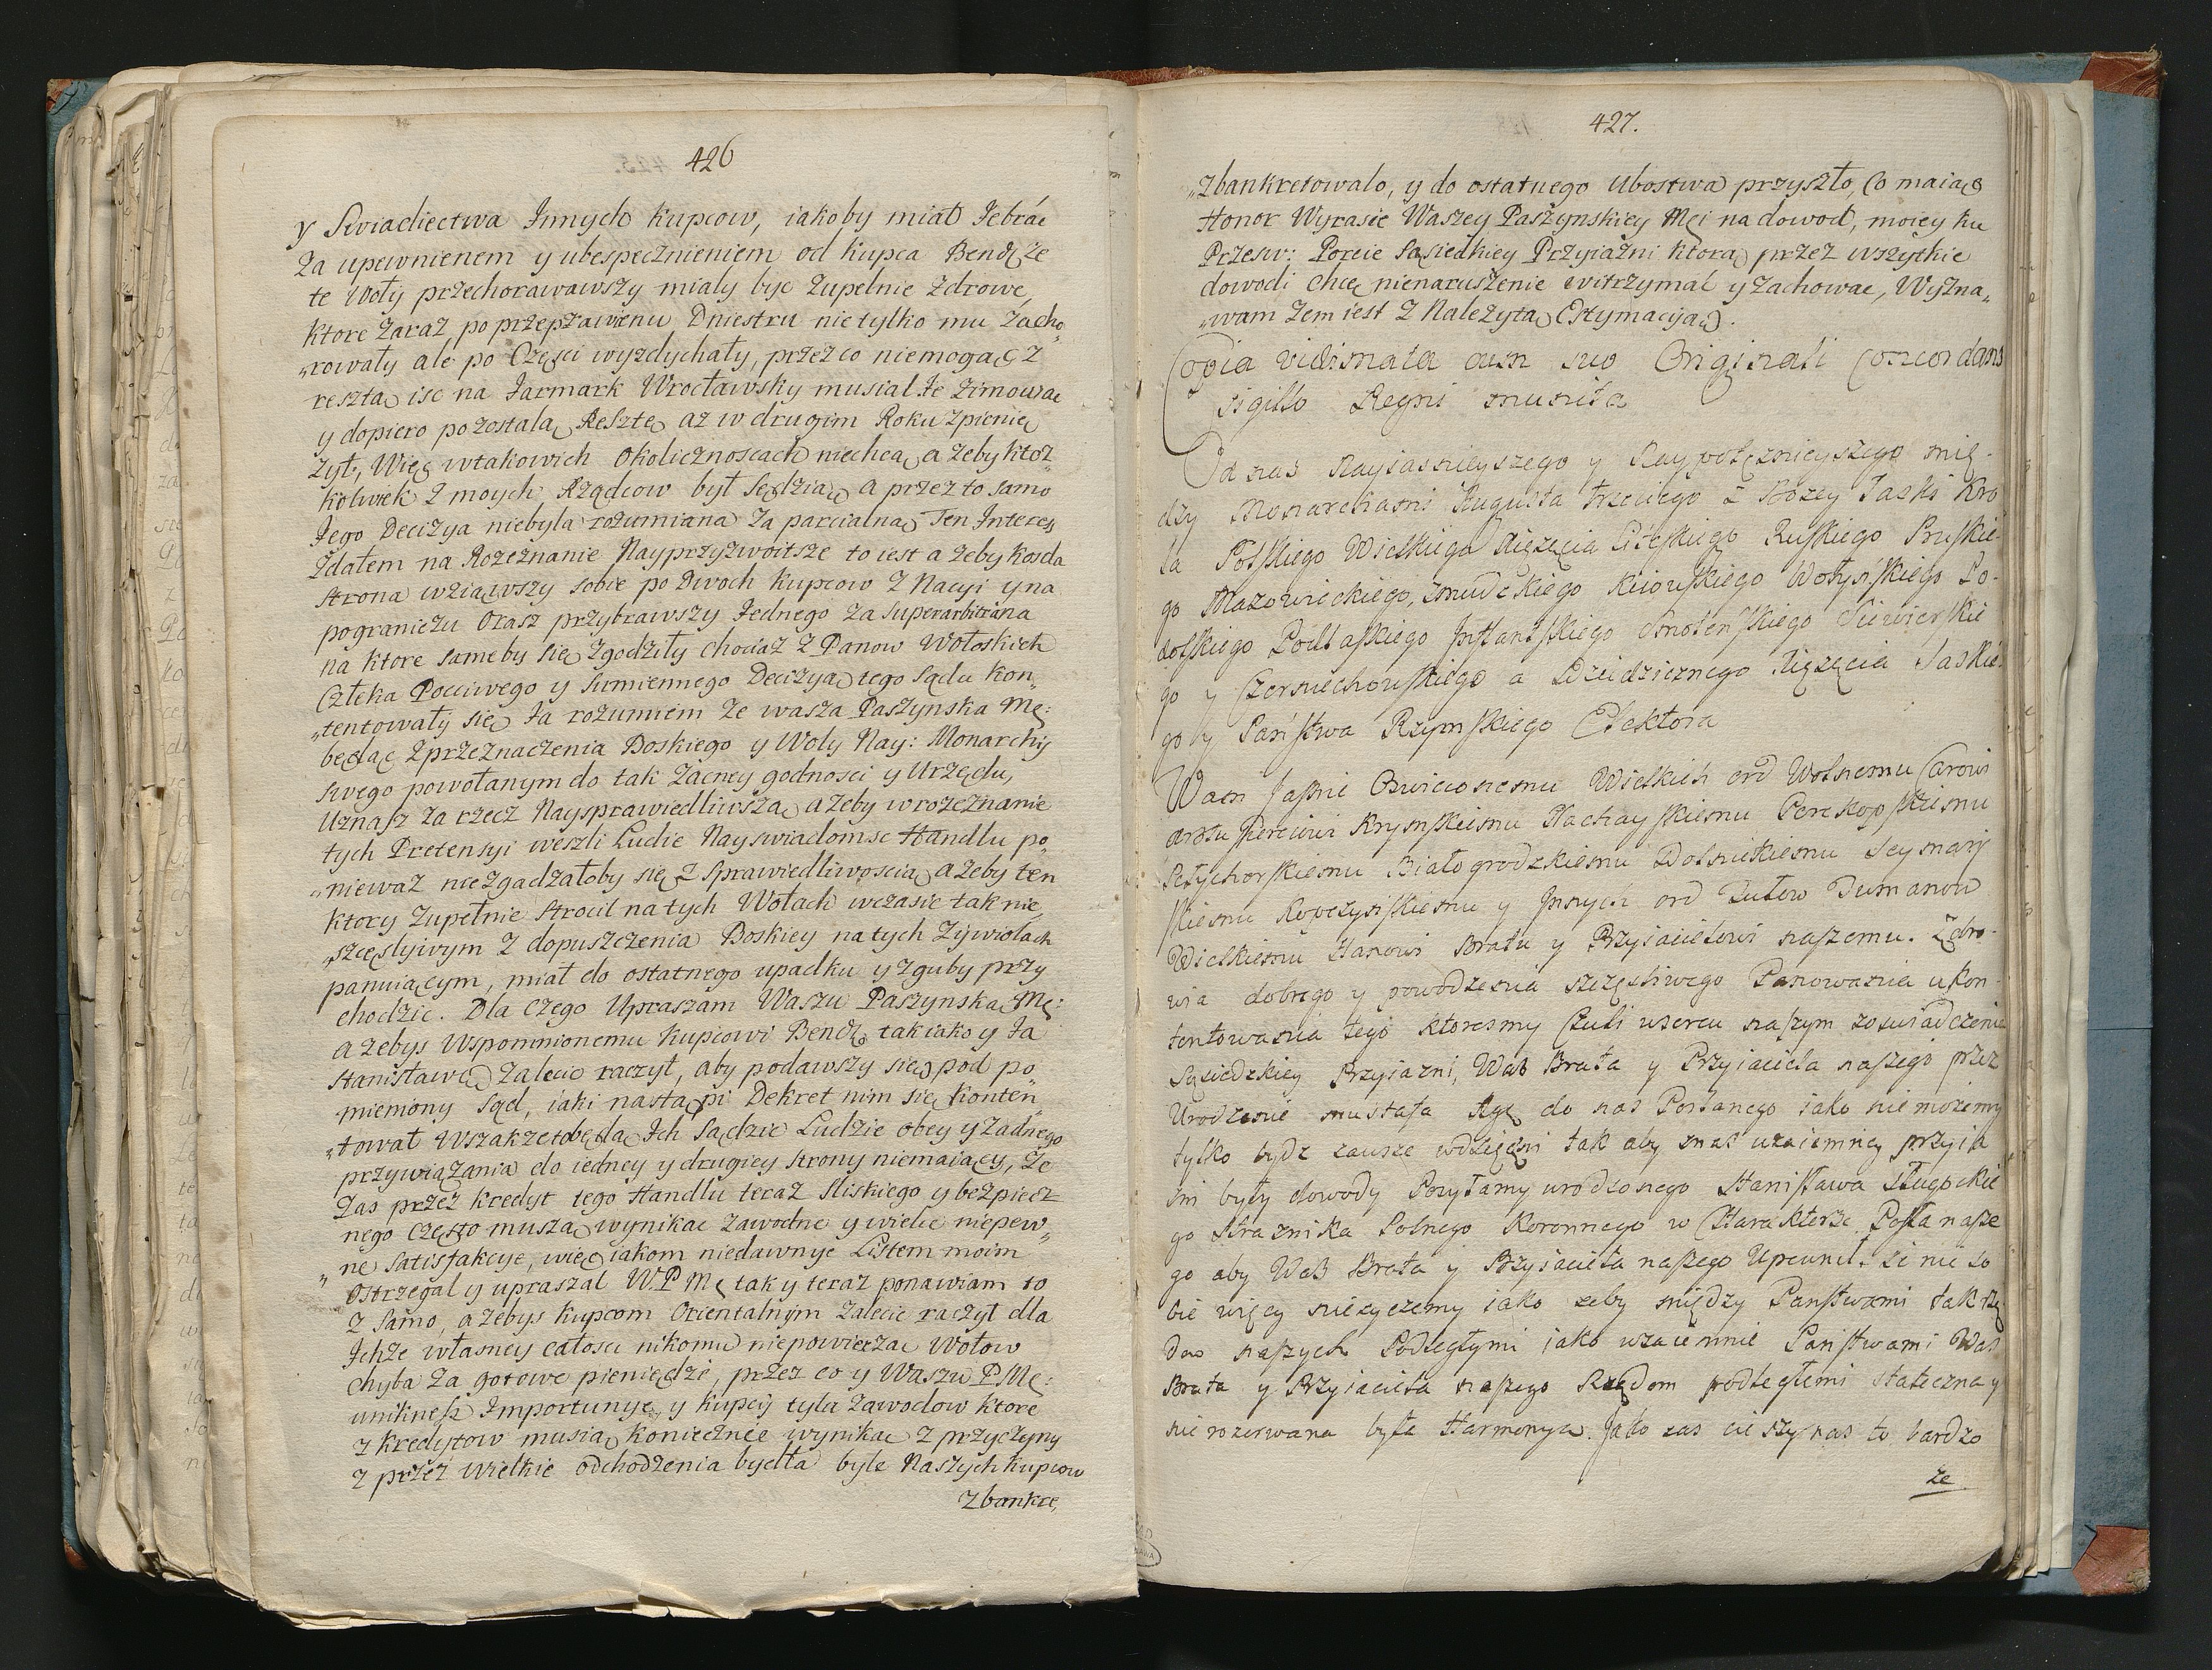 426
y Swiadectwa Innych kupcow, iakoby miał Iebrác
Za upewnienem y ubespecznieniem od kupca Bendę że
te Woły przechorawawszy miały byc Zupełnie Zdrowe,
ktore Zaraz po przeprawienu Dniestru nie tylko mu Zacho„
„rowały ale po Części wyzdychały, przez co niemogąc z
resztą isc na Iarmark Wrocławsky musiał Ie Zimowac
y dopiero pozostalą Resztę aż w drugim Roku Zpienię
Zył, Więc wtakowich Okolicznoscach niechcą, a Żeby ktoż„
kolwiek Z moych Rządcow był Sędzią, a przez to samo
Jego Decizya niebyla rozumiana Za parcialną Ten Interess
Zdałem na Rozeznanie Nayprzyzwoitsze to iest a Żeby kosda
strona wziąwszy sobie po Dwoch kupcow Z Nacyi y na
pograniczu Oraz przybrawszy Iednego Za Superarbitrána
na ktore sameby się Zgodziły chociaż Z Panow Wołoskich
Człeka Poccivego y Sumiennego Decizyą tego Sądu Kon„
„tentowały się Ia rozumiem Ze wasza Paszynska Mę:
będąc Zprzeznaczenia Boskiego y Woly Nay: Monarchij
swego powołanym do tak Zacney godnosci y Urzędu,
Uznasz Za rzecz Naysprawiedliwszą, ażeby w rozeznanie
tych Pretensyi weszli Ludie Nayswiadomse Handlu po„
„nieważ niezgadzałoby się Z Sprawiedliwoscią, ażeby ten
ktory Zupełnie strocil na tych Wołach wczasie tak nie„
„szczęslyivym Z dopuszczenia Boskiey na tych Zywiołach
panuiącym, miał do ostatnego upadku y Zguby przy
chodzic. Dla Czego Upraszam Waszu Paszynską Mę:
ażebys Wspomnionemu kupcowi Bendę, tak iako y Ia
Stanisławę Zalecic raczył, aby podawszy się pod po„
mieniony Sąd, iaki nastąpi Dekret nim się konten„
„tował Wszakże to będą Ich Sądzic Ludzie obcy y Żadnego
przywiązania do iedney y drugiey strony niemaiący, Że
Zas przez kredyt tego Handlu teraz sliskiego y bezpiecz
nego często muszą wynikac Zawodne y wielie niepew„
„ne Satisfakcye, więc iakom niedawnye Listem moim
ostrzegał y upraszał W.P Mę tak y teraz ponawiam to
Z Samo, ażebys kupcom Orientalnym Zalecic raczył dla
Ichże własney całosci nikomu niepowierzac Wołow
chyba Za gotowe pieniędzi, przez co y Waszu P Mę:
unikness Importunye, y kupcij tyla Zawodow ktore
z kredytow musią koniecznee wynikac z przyczyny
z przez wielkie odchodzenia bydła byle Naszych kupcow
Zbankre„
427.
„Zbankretowalo, y do ostatnego Ubostwa przyszło, Co maiąc
Honor Wyrasic Waszey Paszynskiey Męi na dowod, moiey ku
Przesw: Porcie Sąsiedkiey Przyiaźni ktorą przez wszytkie
dowodi chcę nienaruszenie witrzymać y Zachowac, Wyzna„
„wam Zem iest Z Należytą Estymaciją.
Copia vidimata cum suo Originali concordans
sigillo Regni munita
Od nas Nayiasnieyszego y Naypotęznieyszego mię-
dzy Monarchami Augusta trzeciego z Bozey Łaski Kro
la Polskiego Wielkiego Xiązęcia Litskiego Ruskiego Pruskie-
go Mazowieckiego, zmudzkiego Kiiowskiego Wołynskiego Po-
dolskiego Podlaskiego Inflantskiego Smolenskiego Siewierskie
go y Czerniechowskiego a Dzeidzicznego Xiązęcia Saskie-
go y Państwa Rzymskiego Elektora
Wam Jasnie Oswieconemu Wielkich ord Wolnemu Carowi
Krymskiemu Nachayskiemu Perekopskiemu
Biało grodzkiemu
y Innych ord Tumanow
Wielkiemu Hanowi Bratu y Przyiacielowi naszemu. Zdro-
wia dobrego y powodzenia szczęsliwego Panowania ukon-
tentowania tego ktoresmy Czuli wsercu naszym zoswiadczenia
Sąsiedzkiey Przyiazni, Was Brata y Przyiaciela naszego przez
Urodzenie Mustafa Agę do nas Posłanego iako nie możemy
tylko bydz zawsze wdzięczni tak aby znas wzaiemney przyia
zni były dowody Posyłamy urodzonego Stanisława
go Straznika Polnego Koronnego w Charakterze Posła nasze
go aby Was Brata y Przyiaciela naszego Upewnił. że nic so
bie więcy nieżyczemy iako żeby między Panstwami tak rzą
dow naszych Podległymi iako wzaiemnie Panstwami Was
Brata y Przyiaciela naszego Rządom podległemi stateczna y
nierozerwana była Harmonya. Jako zas cieszy nas to bardzo
że